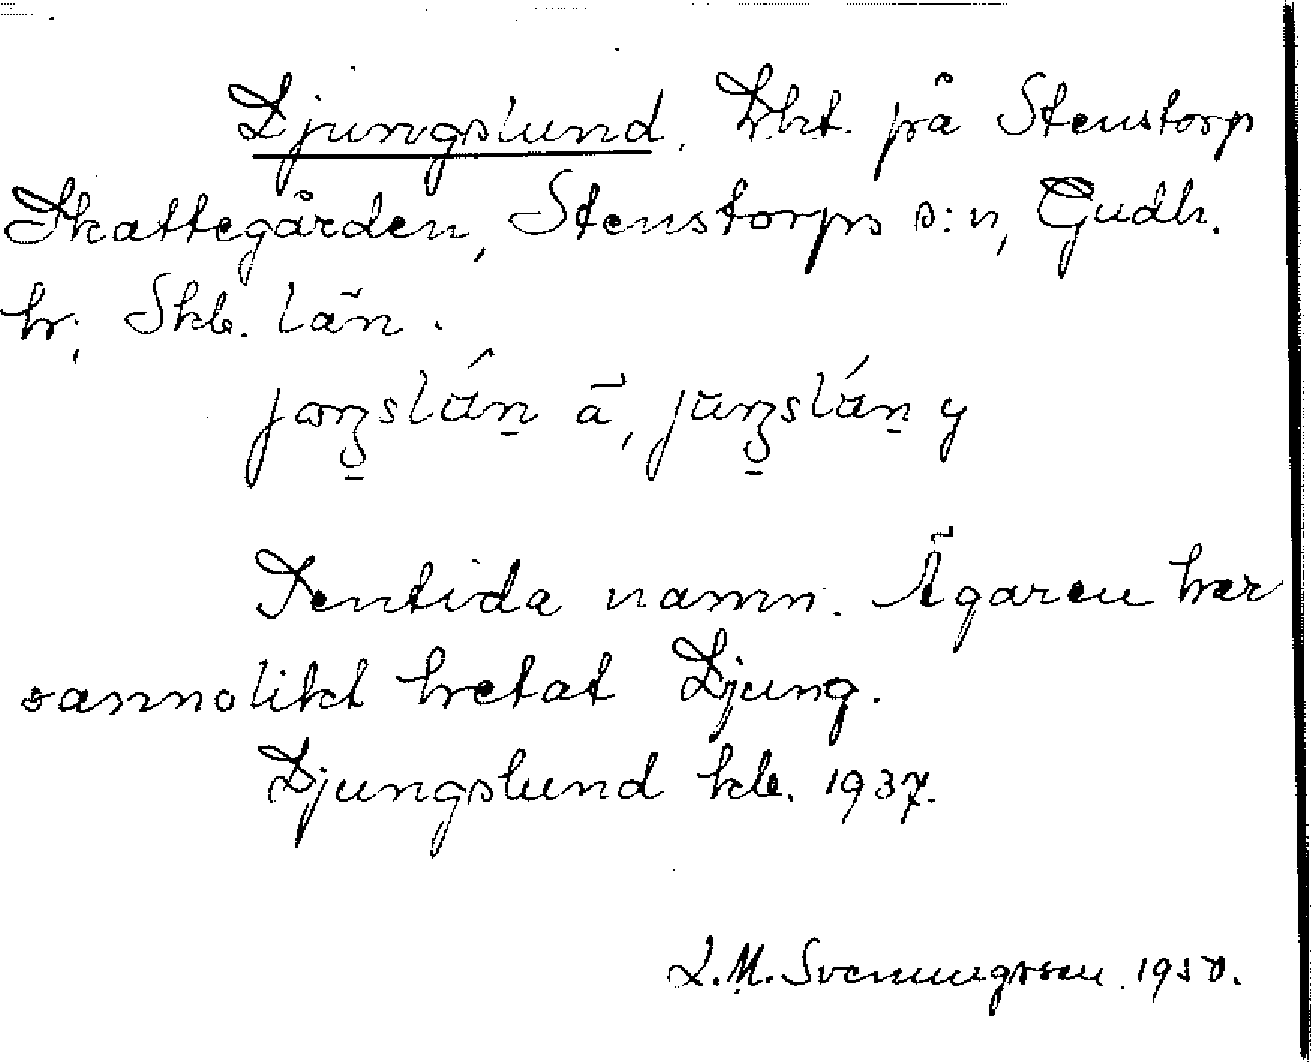 Ljungslund. Lht. på Stenstorp
Skattegården, Stenstorps s:n, Gudh.
hr, Skb. län.
Sentida namn. Ägaren har
sannolikt hetat Ljung.
Ljungslund kb. 1937.
L. M. Svenungsson 1950.